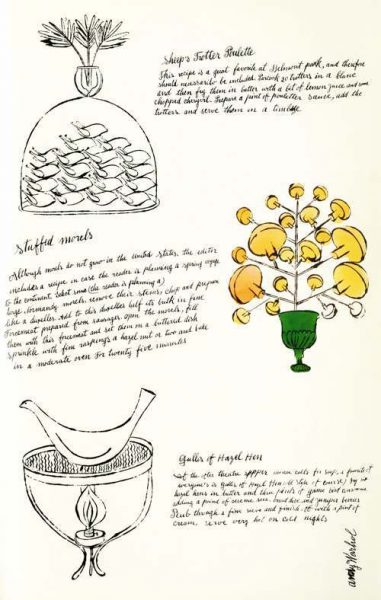 Sheep's Trotter Poulette
This recipe is a great favorite at Belmont park, and therefore
should necessarily be included. Precook 20 trotters in a blanc
and then fry them in butter with a bit of lemon juice and some
chopped chervil. Prepare a pint of poulette sauce, add the
trotters and serve them in a timbale
Stuffed morels
Although morels do not grow in the United States, the editor
includes a recipe in case the reader is planning a spring voyage
to the continent. (the reader is planning a)
large Normandy morels remove their stems chop and prepare
like a duxelles. Add to this duxelles half its bulk in fine
forcemeat prepared from sausages. Open the morels, fill
them with this forcemeat and set them on a buttered dish
sprinkle with fine raspings a hazel nut or two and bake
in a moderate oven for twenty five minutes
Gullee of Hazel Hen
At the after theatre supper comes calls for soup, a favorite of
everyone's is Gullee of Hazel Hen
hazel hens in butter and then
adding a pint of juniper berries
Rub through a fine sieve and finish it with a pint of
cream. serve very hot on cold nights
andy Warhol